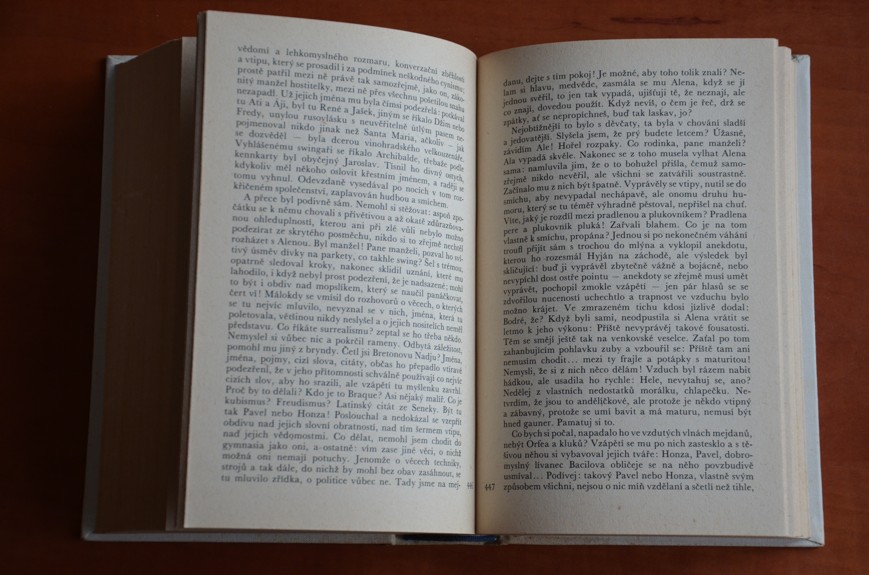 vědomí a lehkomyslného rozmaru, konverzační zběhlosti
a vtipu, který se prosadil i za podmínek neškodného cynismu;
prostě patřil mezi ně právě tak samozřejmě, jako on, záko-
nitý manžel hostitelky, mezi ně přes všechnu pošetilou snahu
nezapadl. Už jejich jména mu byla čímsi podezřelá: potkával
tu Ati a Áji, byl tu René a Jašek, jiným se říkalo Džim nebo
Fredy, unylou rusovlásku s neuvěřitelně útlým pasem ne-
pojmenoval nikdo jinak než Santa Maria, ačkoliv — jak
se dozvěděl — byla dcerou vinohradského velkouzenáře.
Vyhlášenému swingaři se říkalo Archibalde, třebaže podle
kennkarty byl obyčejný Jaroslav. Tísnil ho divný ostych,
kdykoliv měl někoho oslovit křestním jménem, a raději se
tomu vyhnul. Odevzdaně vysedával po nocích v tom roz-
křičeném společenství, zaplavován hudbou a smíchem.
A přece byl podivně sám. Nemohl si stěžovat: aspoň zpo-
čátku se k němu chovali s přívětivou a až okatě zdůrazňova-
nou ohleduplností, kterou ani při zlé vůli nebylo možno
podezírat ze skrytého posměchu, nikdo si to zřejmě nehodl
rozházet s Alenou. Byl manžel! Pane manželi, pozval ho sví-
tivý úsměv dívky na parkety, co takhle swing? Šel s trémou,
opatrně sledoval kroky, nakonec sklidil uznání, které mu
lahodilo, i když nebyl prost podezření, že je nadsazené; mohl
to být i obdiv nad mopslíkem, který se naučil panáčkovat,
čert ví! Málokdy se vmísil do rozhovorů o věcech, o kterých
se tu nejvíc mluvilo, nevyznal se v nich, jména, která tu
poletovala, většinou nikdy neslyšel a o jejich nositelích neměl
představu. Co říkáte surrealismu? zeptal se ho třeba někdo.
Nemyslí si vůbec nic a pokrčil rameny. Odbytá záležitost,
pomohl mu jiný z bryndy. Četl jsi Bretonovu Nadju? Jména,
jména, pojmy, cizí slova, citáty, občas ho přepadlo vtíravé
podezření, že v jeho přítomnosti schválně používají co nejvíc
cizích slov, aby ho srazili, ale vzápětí tu myšlenku zavrhl.
Proč by to dělali? Kdo je to Braque? Asi nějaký malíř. Co je
kubismus? Freudismus? Latinský citát ze Seneky. Být tu
tak Pavel nebo Honza! Poslouchal a nedokázal se vzepřít
obdivu nad jejich slovní obratností, nad tím šermem vtipu,
nad jejich vědomostmi. Co dělat, nemohl jsem chodit do
gymnasia jako oni, a ostatně: vím zase jiné věci, o nichž
možná oni nemají potuchy. Jenomže o věcech techniky,
strojů a tak dále, do nichž by mohl bez obav zasáhnout, se
tu mluvilo zřídka, o politice vůbec ne. Tady jsme na mej-
danu, dejte s tím pokoj! Je možné, aby toho tolik znali? Ne-
lam si hlavu, medvěde, zasmála se mu Alena, když se jí
jednou svěřil, to jen tak vypadá, ujišťuji tě, že neznají, ale
co znají, dovedou použít. Když nevíš, o čem je řeč, drž se
zpátky, ať se nepropíchneš, buď tak laskav, jo?
Nejobtížnější to bylo s děvčaty, ta byla v chování sladší
a jedovatější. Slyšela jsem, že prý budete letcem? Úžasné,
závidím Ale! Hořel rozpaky. Co rodinka, pane manželi?
Ala vypadá skvěle. Nakonec se z toho musela vylhat Alena
sama: namluvila jim, že o to bohužel přišla, čemuž samo-
zřejmě nikdo nevěřil, ale všichni se zatvářili soustrastně.
Začínalo mu z nich být špatně. Vyprávěly se vtipy, nutil se do
smíchu, aby nevypadal nechápavě, ale onomu druhu hu-
moru, který se tu téměř výhradně pěstoval, nepřišel na chuť.
Víte, jaký je rozdíl mezi pradlenou a plukovníkem? Pradlena
pere a plukovník pluká! Zařvali blahem. Co je na tom
vlastně k smíchu, propána? Jednou si po nekonečném váhání
troufl přijít sám s trochou do mlýna a vyklopil anekdotu,
kterou ho rozesmál Hyján na záchodě, ale výsledek byl
skličující: buď ji vyprávěl zbytečně vážně a bojácně, nebo
nevypíchl dost ostře pointu — anekdoty se zřejmě musí umět
vyprávět, pochopil zmokle vzápětí — jen pár hlasů se se
zdvořilou nuceností uchechtlo a trapnost ve vzduchu bylo
možno krájet. Ve zmrazeném tichu kdosi jízlivě dodal:
Bodré, že? Když byli sami, neodpustila si Alena vrátit se
letmo k jeho výkonu: Příště nevyprávěj takové fousatosti.
Těm se smějí ještě tak na venkovské veselce. Zaťal po tom
zahanbujícím pohlavku zuby a vzbouřil se: Příště tam ani
nemusím chodit... mezi ty frajle a potápky s maturitou!
Nemysli, že si z nich něco dělám! Vzduch byl rázem nabit
hádkou, ale usadila ho rychle: Hele, nevytahuj se, ano?
Nedělej z vlastních nedostatků morálku, chlapečku. Ne-
tvrdím, že jsou to andělíčkové, ale protože je někdo vtipný
a zábavný, protože se umí bavit a má maturu, nemusí být
hned gauner. Pamatuj si to.
Co bych si počal, napadalo ho ve vzdutých vlnách mejdanů,
nebýt Orfea a kluků? Vzápětí se mu po nich zastesklo a s tě-
tivou něhou si vybavoval jejich tváře: Honza, Pavel, dobro-
myslný lívanec Bacilova obličeje se na něho povzbudivě
usmíval... Podívej: takový Pavel nebo Honza, vlastně svým
způsobem všichni, nejsou o nic míň vzdělaní a sčetlí než tihle,
447